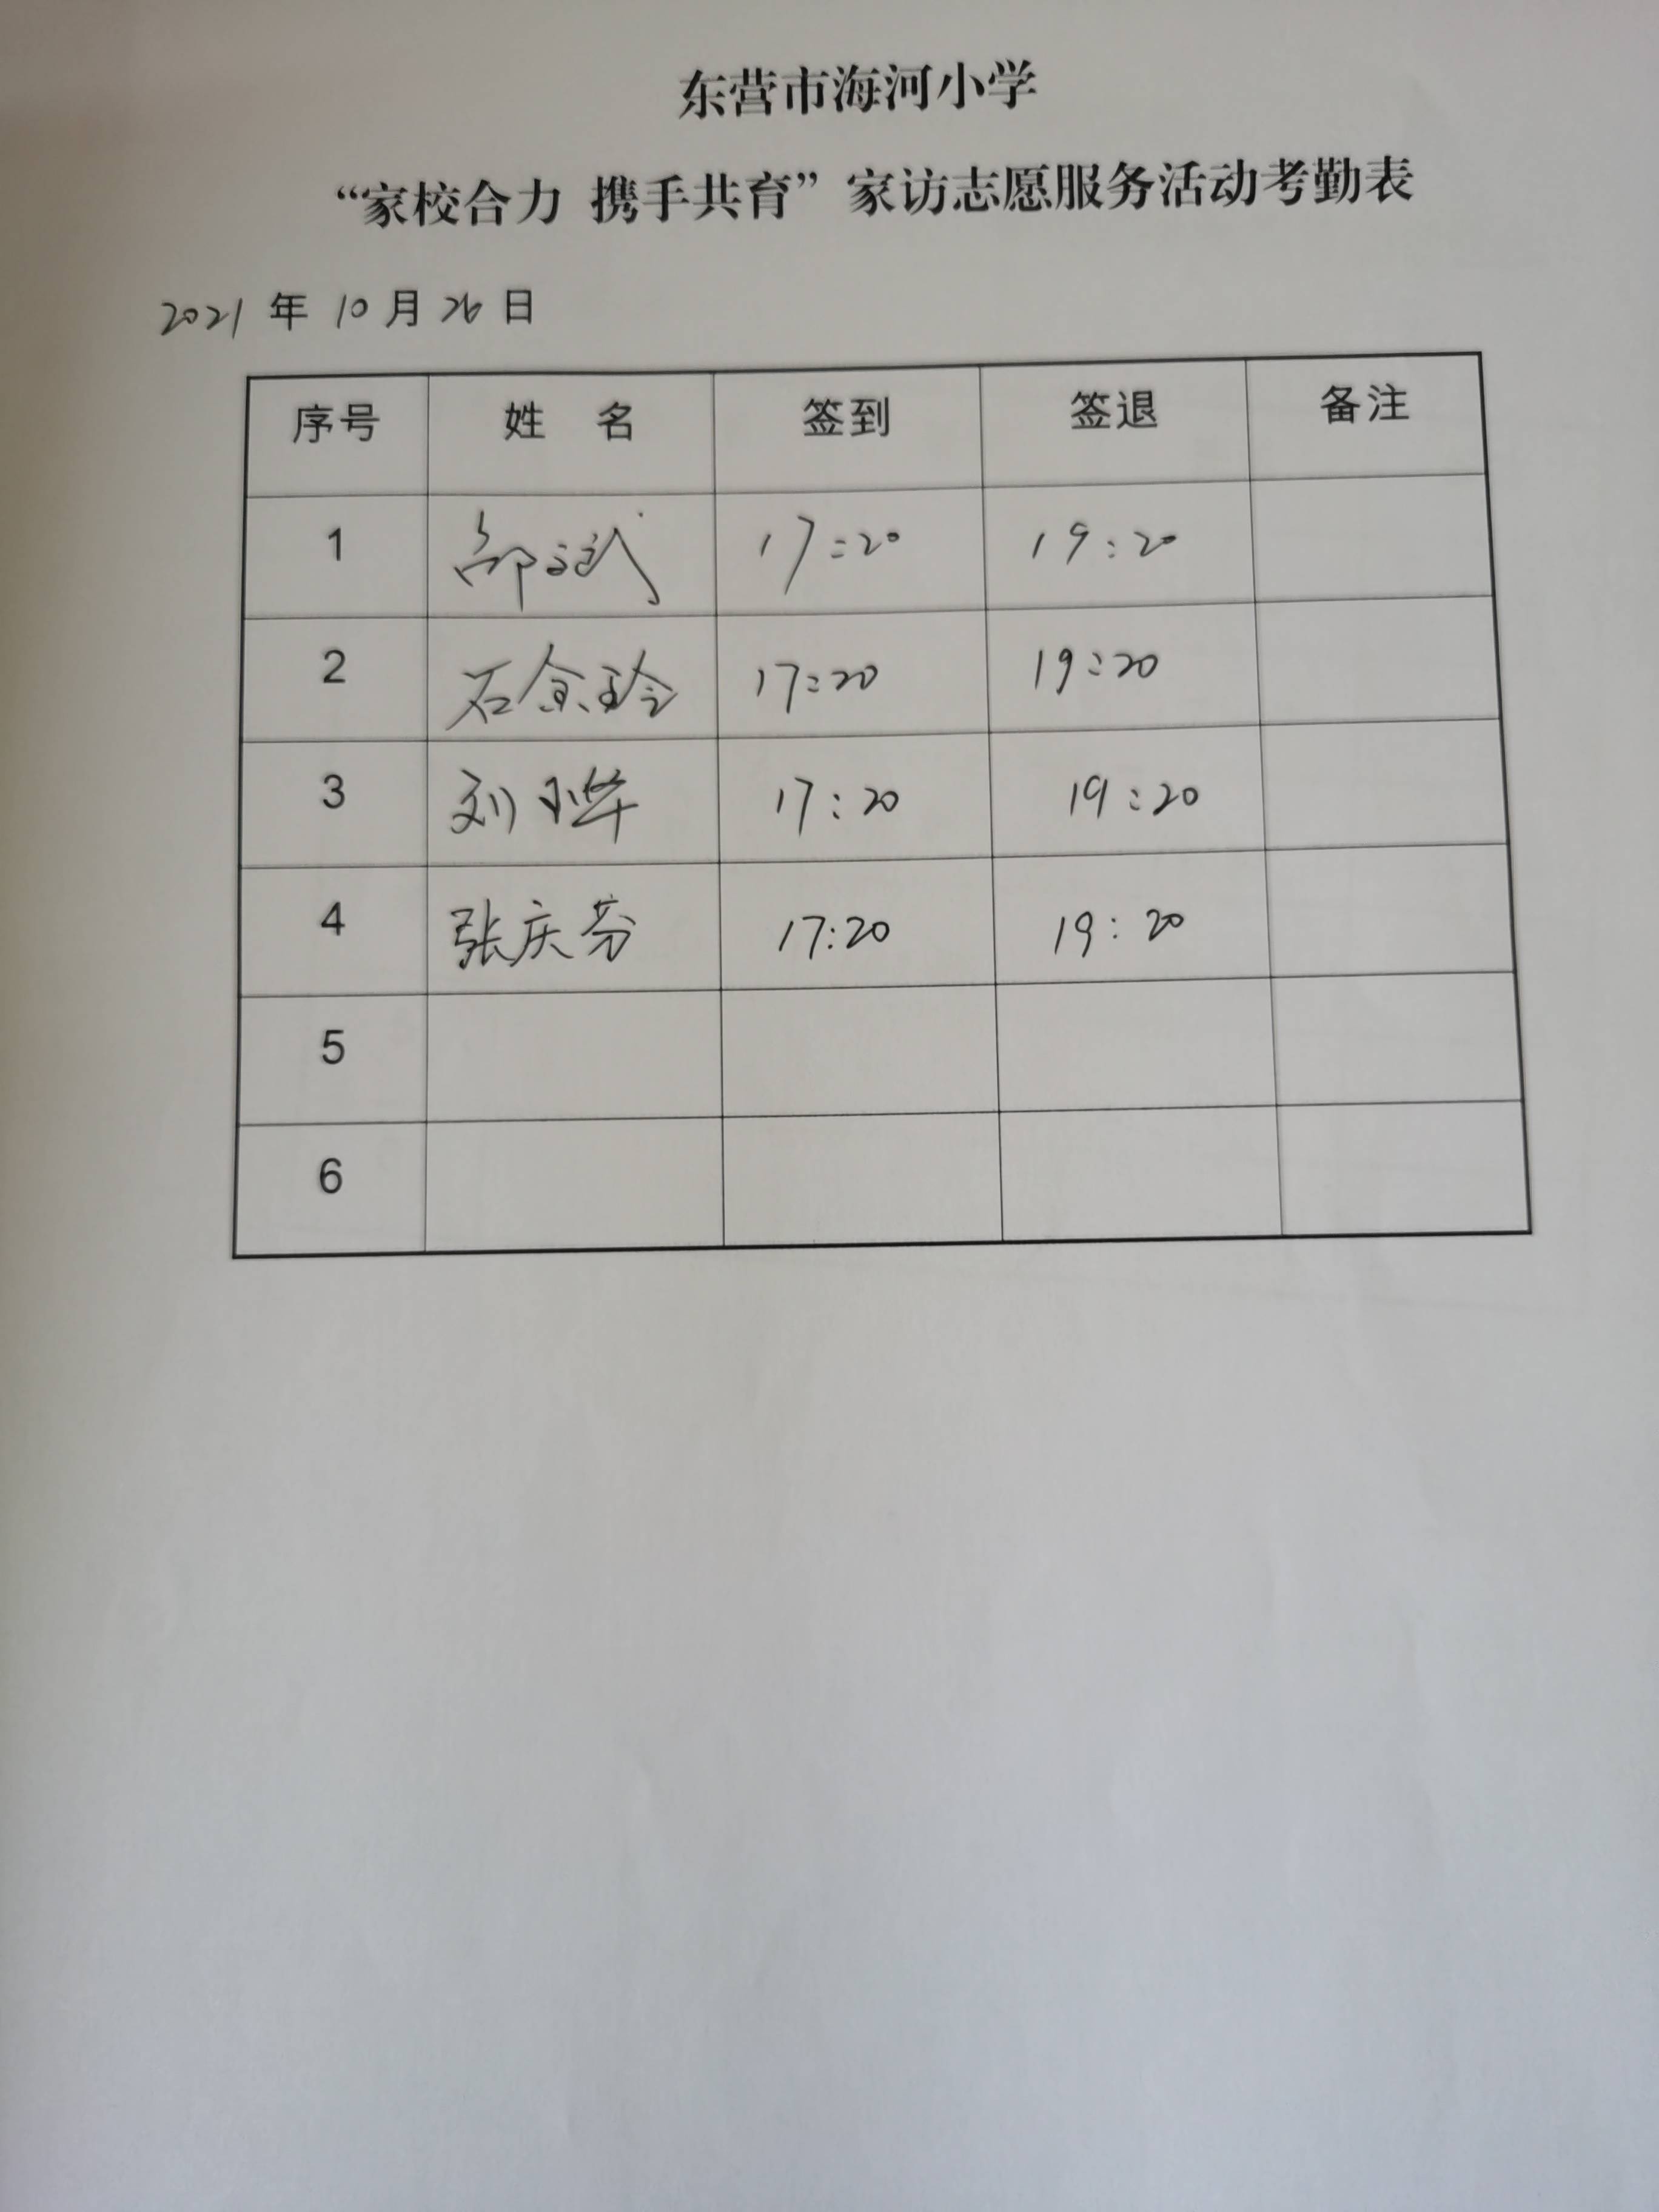 东营市海河小学
“家校合力 携手共育”家访志愿服务活动考勤表
2021 年 10 月 26 日
序号 姓 名 签到 签退 备注
1 17:20 19:20
2 石金玲 17:20 19:20
3 刘 17:20 19:20
4 张庆芬 17:20 19:20
5
6